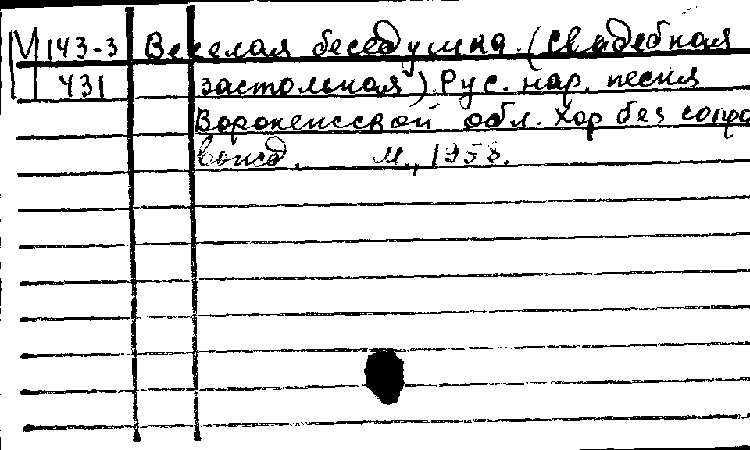 М 143-3 Веселая беседушка. (Свадебная
431 застольная). Рус. нар. песня
Воронежской обл. Хор без сопро
вожд. М., 1958.